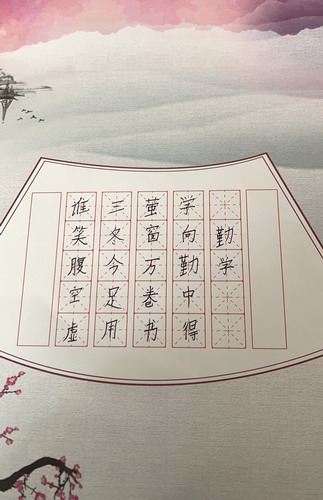 勤学
学向勤中得
萤窗万卷书
三冬今足用
谁笑腹空虚